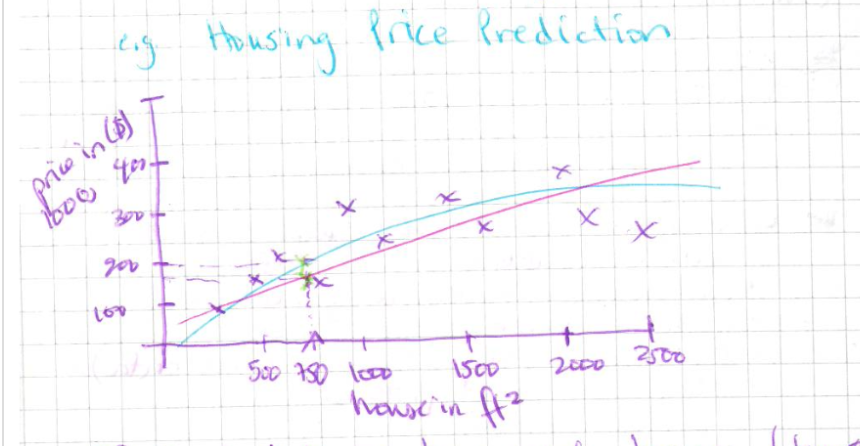 e.g Housing Price Prediction
price in ($)
1000
400
300
200
100
500 750 1000 1500 2000 2500
house in ft²